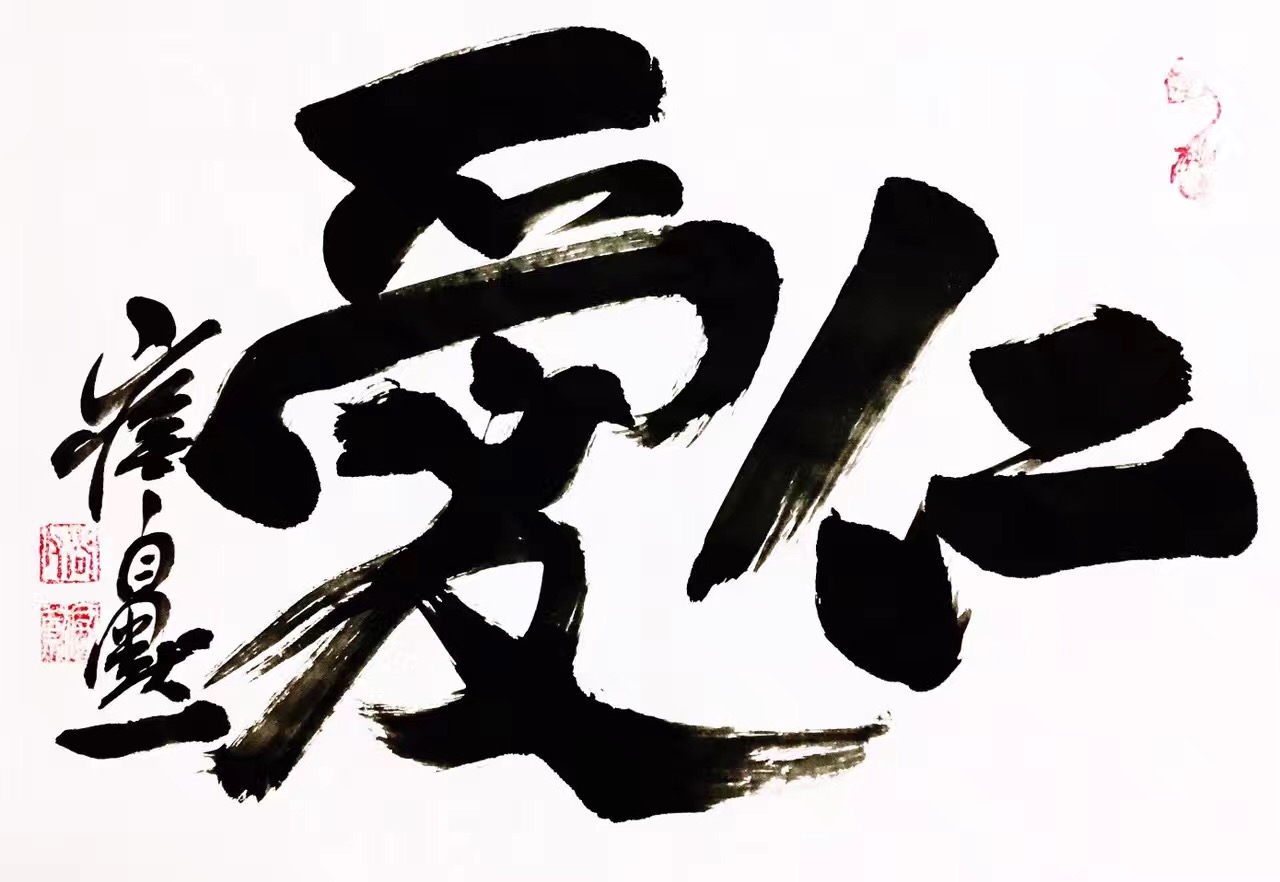 仁愛
崔自默